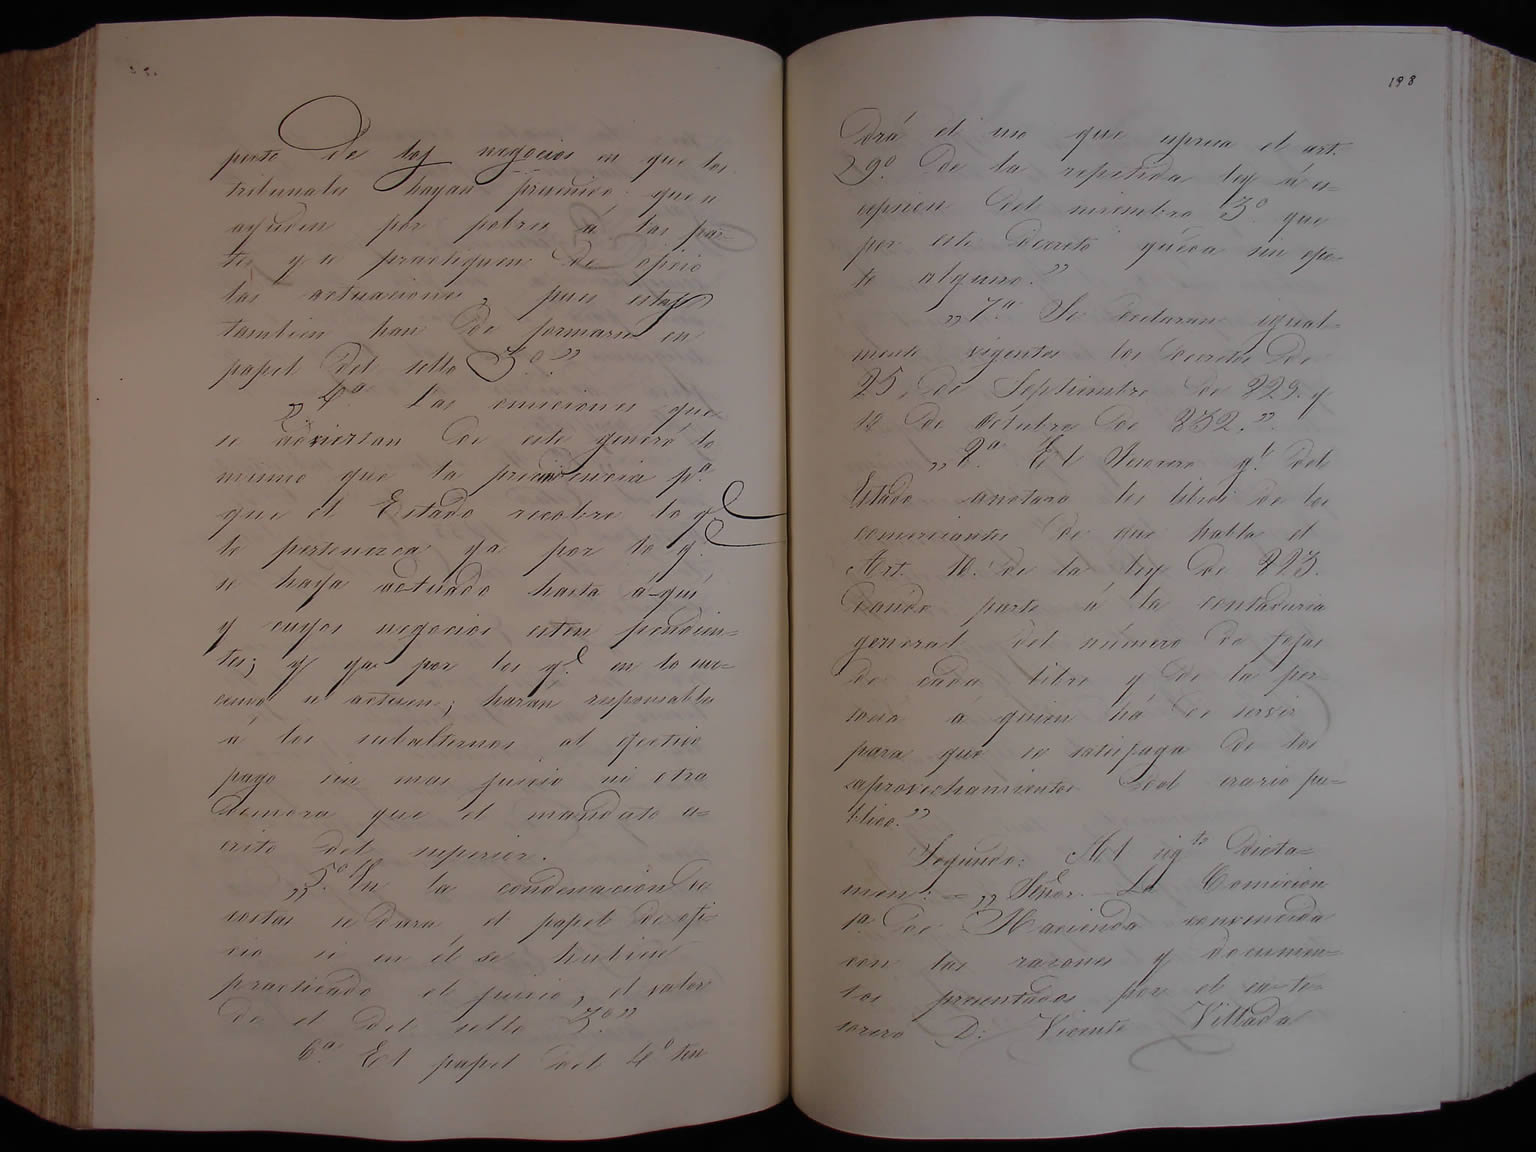 puesto de los negocios en que los
tribunales hayan prevenido que se
ayuden por pobres á las par=
tes y se practiquen de oficio
las actuaciones, pues estas
tambien han de formarse en
papel del sello 3.º"
"4.ª Las omiciones que
se adviertan de este genero lo
mismo que la providencia p.ª
que el Estado recobre lo q.e
le pertenezca ya por lo q.e
se haya actuado hasta á-quí
y cuyos negocios esten pendien=
tes; y ya por los q.e en lo su=
cesivo se actuen; harán responsables
á los subalternos al efectivo
pago sin mas juicio ni otra
demora que el mandato es=
crito del superior.
"5.ª En la condenacion de
costas se dara el papel de ofi=
cio si en él se hubiere
practicado el juicio, el valor
de el del sello 3.º"
6.ª El papel del 4.º ten
198
drá el uso que espresa el art.
29.º de la repetida ley á es=
cepcion del miembro 3.º que
por este Decreto queda sin efec=
to alguno."
"7.ª Se declaran igual=
mente vigentes los decretos de
25, de Septiembre de 829. y
18 de Octubre de 832."
"8.ª El Tesorero g.l del
Estado anotara los libros de los
comerciantes de que habla el
Art. 10. de la ley de 823.
dando parte á la contaduria
general del número de fojas
de cada libro y de la per
sona á quien há de servir
para que se satisfaga de los
aprovechamientos del erario pu=
blico."
Segundo: Al sig.te dicta=
men: = "Señor. La Comicion
1.ª de Hacienda convencida
con las razones y documen=
tos presentados por el ex-te=
sorero D. Vicente Villada